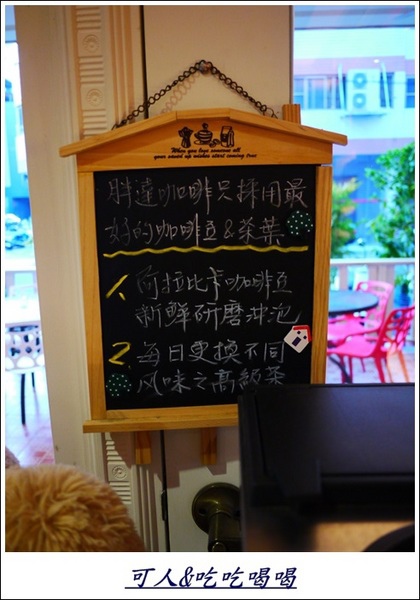 When you love someone all
your saved up wishes start coming true
胖達咖啡只採用最
好的咖啡豆&茶葉
1. 阿拉比卡咖啡豆
新鮮研磨沖泡
2. 每日更換不同
风味之高級茶
可人&吃吃喝喝